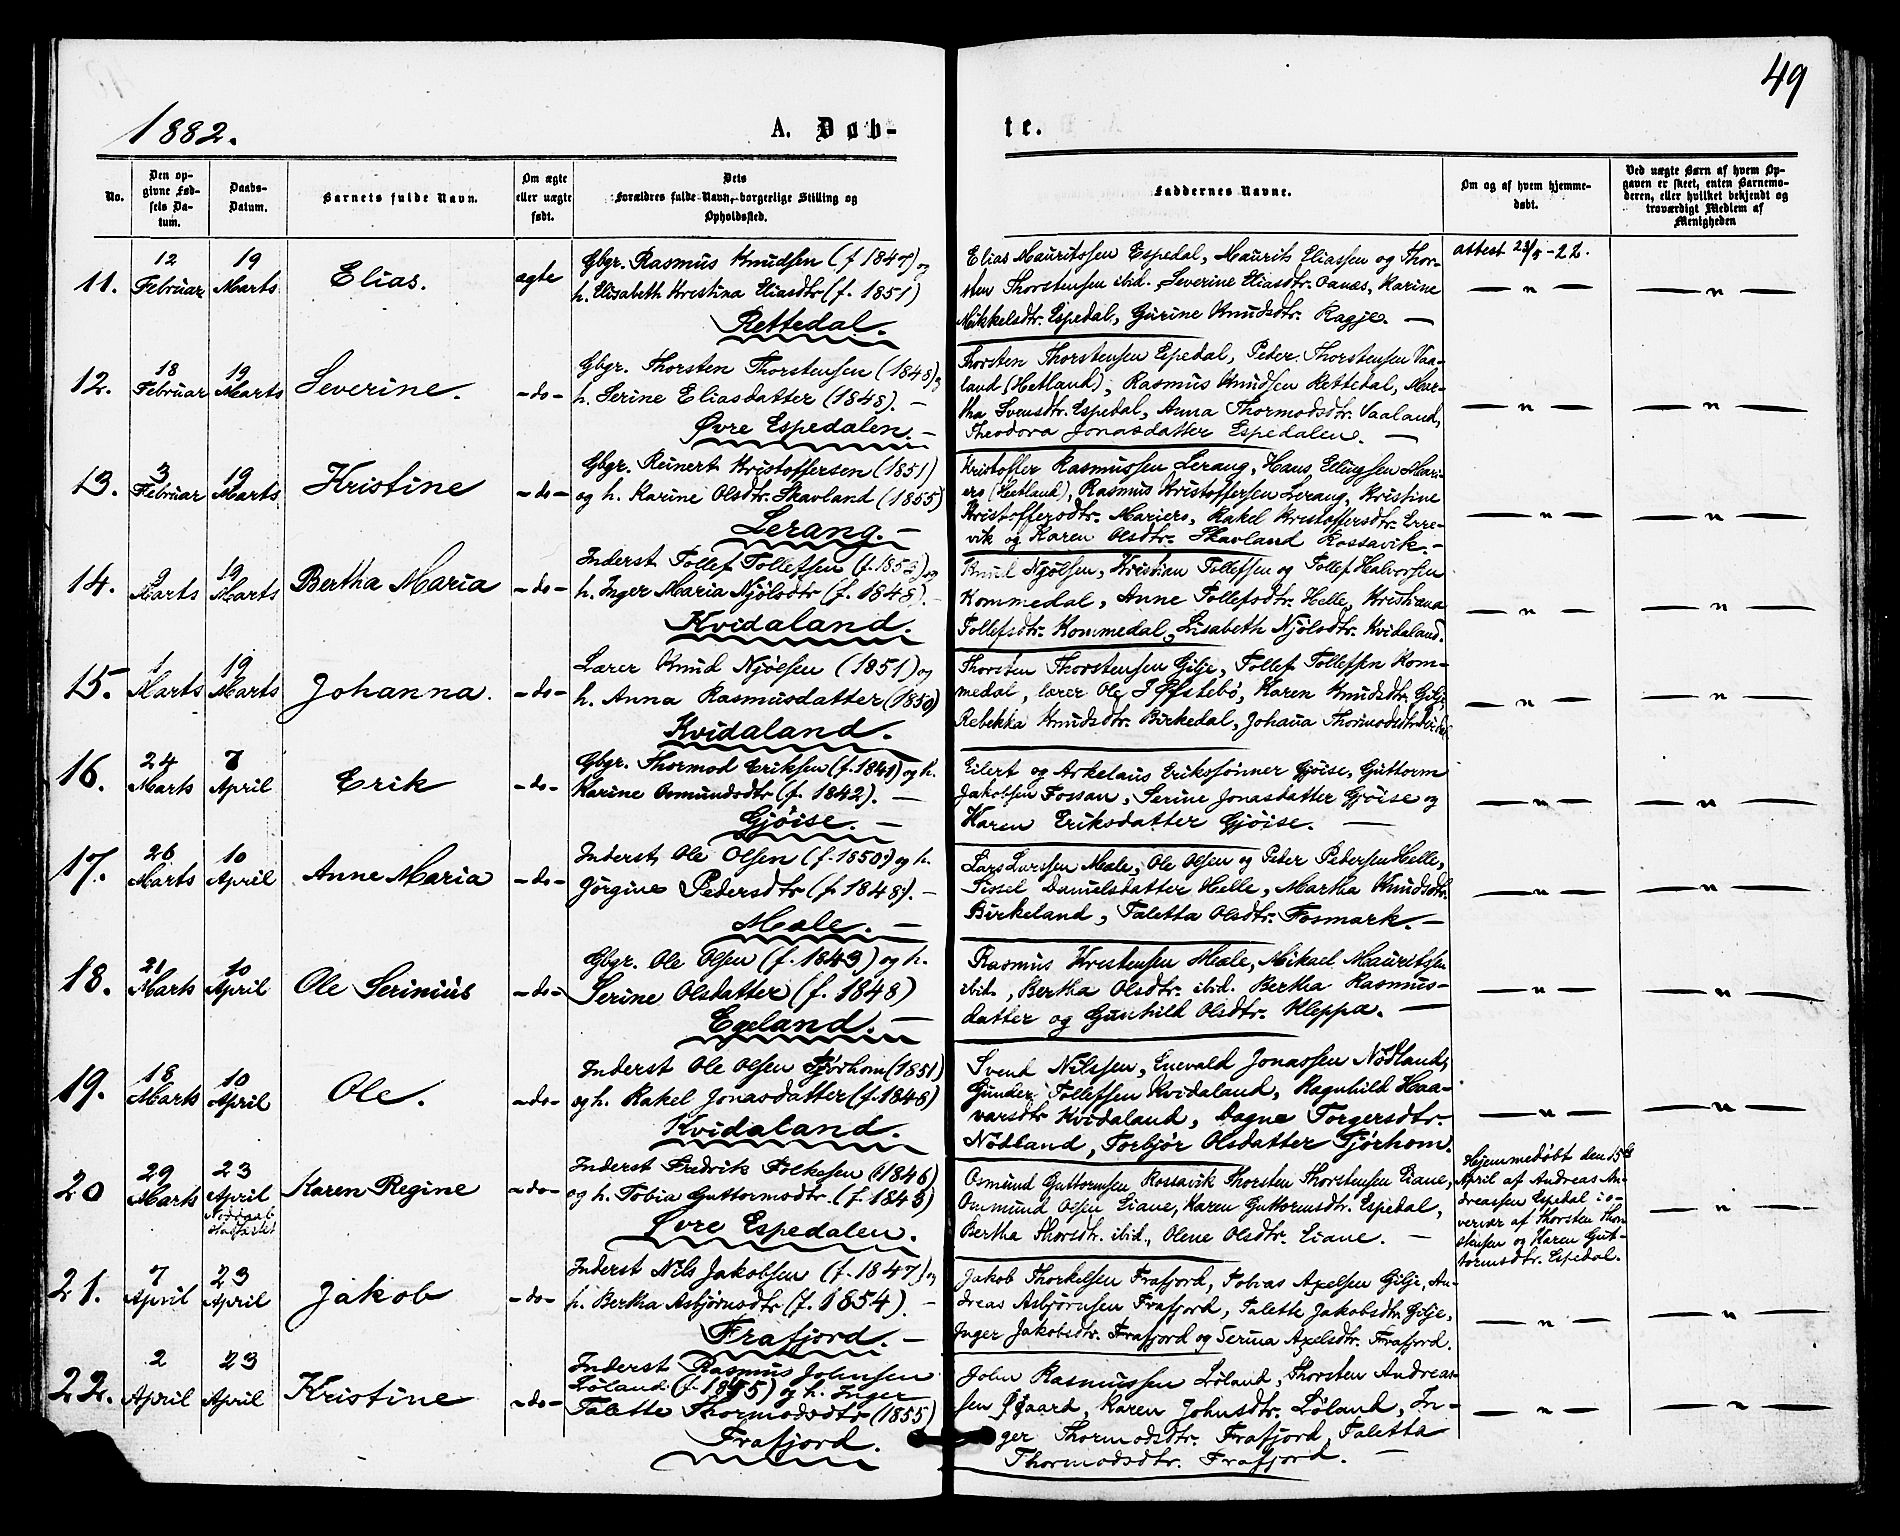 49
1882.
A. Døb-
te.
No.
Den op-
givne Fød-
sels Da-
tum.
Daabs-
Datum.
Barnets fulde Navn.
Om ægte
eller uægte
født.
Dets
Forældres fulde Navn, borgerlige Stilling og
Opholdssted.
Faddernes Navne.
Om og af hvem hjemme-
døbt.
Ved uægte Børn af hvem Op-
gaven er skeet, enten Barnemo-
deren, eller hvilket bekjendt og
troværdigt Medlem af
Menigheden
11.
12
Februar
19
Marts
Elias.
ægte
Gbgr. Rasmus Knudsen (f. 1847) og
h. Elisabeth Krestina Eliasdtr (f. 1851)
Rettedal.
Elias Mauritssen Espedal, Maurits Eliassen og Thor-
sten Thorstensen ibid., Severine Eliasdtr. Oanæs, Karine
Mikkelsdtr. Espedal, Gurine Knudsdtr. Ragje. —
attest 23/5-22.
— " —
— " —
12.
18
Februar
19
Marts
Severine.
-do-
Gbgr. Thorsten Thorstensen (1848) og
h. Serine Eliasdatter (1848). —
Øvre Espedalen. —
Thorsten Thorstensen Espedal, Peder Thorstensen Vaa-
land (Hetland), Rasmus Knudsen Rettedal, Mar-
tha Svensdtr. Espedal, Anna Thormodsdtr. Vaaland,
Theodora Jonasdatter Espedalen. —
— " —
— " —
13.
3
Februar
19
Marts
Kristine
-do-
Gbgr. Reinert Kristoffersen (1851)
og h. Karine Olsdtr. Skavland (1855)
Lerang. —
Kristoffer Rasmussen Lerang, Hans Ellingsen Mari-
ero (Hetland), Rasmus Kristoffersen Lerang, Kristine
Kristoffersdtr. Mariero, Rakel Kristoffersdtr. Erre-
vik og Karen Olsdtr. Skavland Rossavik. —
— " —
— " —
14.
9
Marts
19
Marts
Bertha Maria
-do-
Inderst Tollef Tollefsen (f. 1853) og
h. Inger Maria Njølsdtr (f. 1848). —
Kvidaland.
Knud Njølsen, Kristian Tollefsen og Tollef Halvorsen
Kommedal, Anne Tollefsdtr. Helle, Kristiana
Tollefsdtr. Kommedal, Lisabeth Njølsdtr. Kvidaland.
— " —
— " —
15.
1
Marts
19
Marts
Johanna.
-do-
Lærer Knud Njølsen (1851) og
h. Anna Rasmusdatter (1850)
Kvidaland.
Thorsten Thorstensen Gilje, Tollef Tollefsen Kom-
medal, lærer Ole J Øfstebø, Karen Knudsdtr. Gilje
Rebekka Knudsdtr. Birkedal, Johana Thormodsdtr.
— " —
— " —
16.
24
Marts
7
April
Erik
-do-
Gbgr. Thormod Eriksen (f. 1841) og h.
Karine Osmundsdtr (f. 1842). —
Gjøise. —
Eilert og Arkelaus Erikssønner Gjøise, Guttorm
Jakobsen Fossan, Serine Jonasdatter Gjøise og
Karen Eriksdatter Gjøise. —
— " —
— " —
17.
26
Marts
10
April
Anne Maria
-do-
Inderst Ole Olsen (f. 1850) og h.
Jørgine Pedersdtr (f. 1848). —
Mæle. —
Lars Larsen Mæle, Ole Olsen og Peder Pedersen Helle,
Sissel Danielsdatter Helle, Martha Knudsdtr.
Birkeland, Taletta Olsdtr. Fosmark. —
— " —
— " —
18.
21
Marts
10
April
Ole Serinius
-do-
Gbgr. Ole Olsen (f. 1843) og h.
Serine Olsdatter (f. 1848)
Egeland. —
Rasmus Krestensen Mæle, Mikael Mauritssen
ibid., Bertha Olsdtr. ibid. Bertha Rasmus-
datter og Gunhild Olsdtr. Kleppa. —
— " —
— " —
19.
18
Marts
10
April
Ole.
-do-
Inderst Ole Olsen Tjørhom (1851)
og h. Rakel Jonasdatter (f. 1846)
Kvidaland.
Svend Nilssen, Enevald Jonassen Nødland,
Gunder Tollefsen Kvidaland, Ragnhild Haa-
varsdtr Kvidaland, Dagne Torgersdtr.
Nødland, Torbjør Olsdatter Tjørhom.
— " —
— " —
20
29
Marts
23
April
Nøddaab
stadfæstet
Karen Regine
-do-
Inderst Fredrik Folkesen (1846)
og h. Tobia Guttormsdtr. (f. 1843)
Øvre Espedalen.
Osmund Guttormsen Rossavik Thorsten Thorstensen Eiane,
Ommund Olsen Eiane, Karen Guttormsdtr. Espedal,
Bertha Thorsdtr. ibid., Olene Olsdtr. Eiane. —
Hjemmedøbt den 15de
April af Andreas An-
dreassen Espedal i o-
vervær af Thorsten Thor-
stensen og Karen Gut-
tormsdtr. Espedal.
— " —
21.
7
April
23
April
Jakob
-do-
Inderst Nils Jakobsen (f. 1847) og
h. Bertha Asbjørnsdtr (f. 1854). —
Frafjord. —
Jakob Thorkelsen Frafjord, Tobias Axelsen Gilje, An-
dreas Asbjørnsen Frafjord, Talette Jakobsdtr. Gilje,
Inger Jakobsdtr. Frafjord og Serina Axelsdtr. Frafjord.
— " —
— " —
22.
2
April
23
April
Kristine
-do-
Inderst Rasmus Johnsen
Løland (f. 1855) og h. Inger
Talette Thormodsdtr (1855)
Frafjord.
John Rasmussen Løland, Thorsten Andreas-
sen Øgaard, Karen Johnsdtr. Løland, In-
ger Thormodsdtr. Frafjord, Taletta
Thormodsdtr. Frafjord. —
— " —
— " —